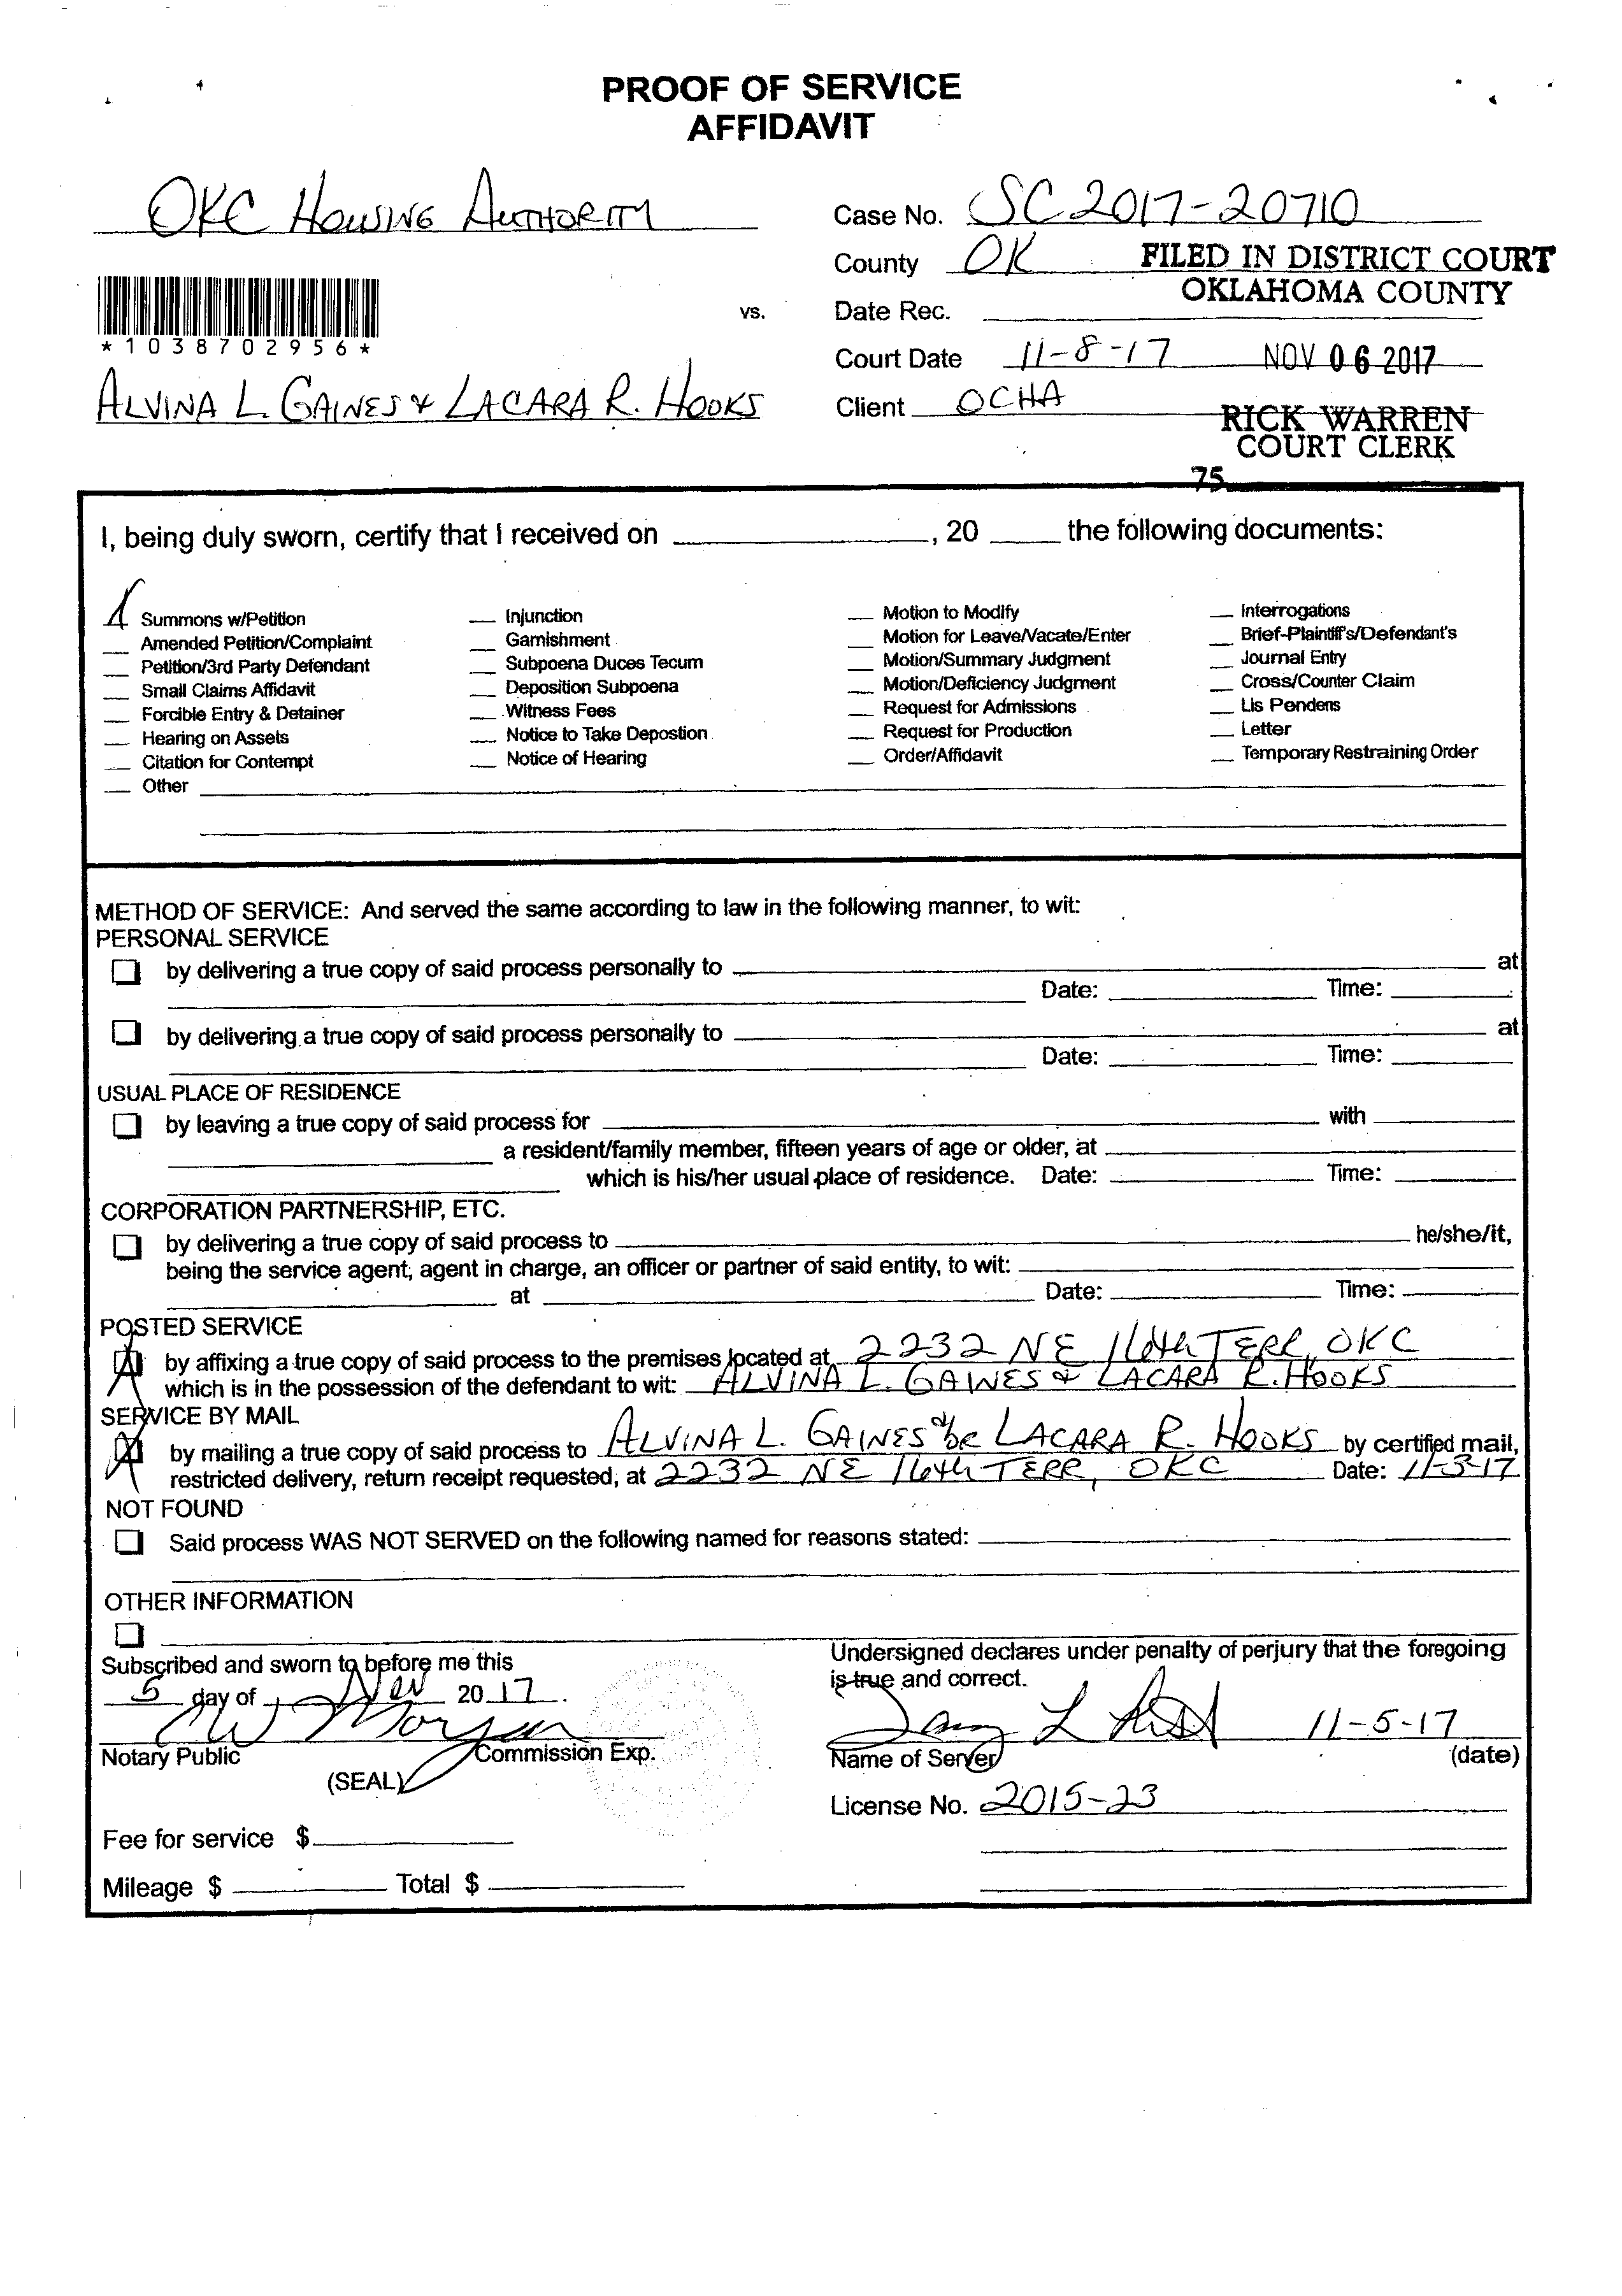 PROOF OF SERVICE
AFFIDAVIT
OKC HOUSING AUTHORITY
Case No. SC2017-20710
County OK
FILED IN DISTRICT COURT
OKLAHOMA COUNTY
*1038702956*
vs.
Date Rec.
Court Date 11-8-17
NOV 06 2017
ALVINA L. GAINES & LACARA R. HOOKS
Client OCHA
RICK WARREN
COURT CLERK
75
I, being duly sworn, certify that I received on ____, 20 ____ the following documents:
Summons w/Petition
Amended Petition/Complaint
Petition/3rd Party Defendant
Small Claims Affidavit
Forcible Entry & Detainer
Hearing on Assets
Citation for Contempt
Other
Injunction
Garnishment
Subpoena Duces Tecum
Deposition Subpoena
Witness Fees
Notice to Take Depostion
Notice of Hearing
Motion to Modify
Motion for Leave/Vacate/Enter
Motion/Summary Judgment
Motion/Deficiency Judgment
Request for Admissions
Request for Production
Order/Affidavit
Interrogations
Brief-Plaintiff's/Defendant's
Journal Entry
Cross/Counter Claim
Lis Pendens
Letter
Temporary Restraining Order
METHOD OF SERVICE: And served the same according to law in the following manner, to wit:
PERSONAL SERVICE
by delivering a true copy of said process personally to ____ at
Date: ____ Time: ____
by delivering a true copy of said process personally to ____ at
Date: ____ Time: ____
USUAL PLACE OF RESIDENCE
by leaving a true copy of said process for ____ with ____
a resident/family member, fifteen years of age or older, at ____
which is his/her usual place of residence. Date: ____ Time: ____
CORPORATION PARTNERSHIP, ETC.
by delivering a true copy of said process to ____ he/she/it,
being the service agent, agent in charge, an officer or partner of said entity, to wit: ____
at ____ Date: ____ Time: ____
POSTED SERVICE
by affixing a true copy of said process to the premises located at 2232 NE 16th TERR, OKC
which is in the possession of the defendant to wit: ALVINA L. GAINES & LACARA R. HOOKS
SERVICE BY MAIL
by mailing a true copy of said process to ALVINA L. GAINES &/or LACARA R. HOOKS by certified mail,
restricted delivery, return receipt requested, at 2232 NE 16th TERR, OKC Date: 11-3-17
NOT FOUND
Said process WAS NOT SERVED on the following named for reasons stated:
OTHER INFORMATION
Subscribed and sworn to before me this
5 day of Nov 2017.
Notary Public Commission Exp.
(SEAL)
Undersigned declares under penalty of perjury that the foregoing
is true and correct.
11-5-17
Name of Server (date)
License No. 2015-23
Fee for service $
Mileage $ ____ Total $ ____